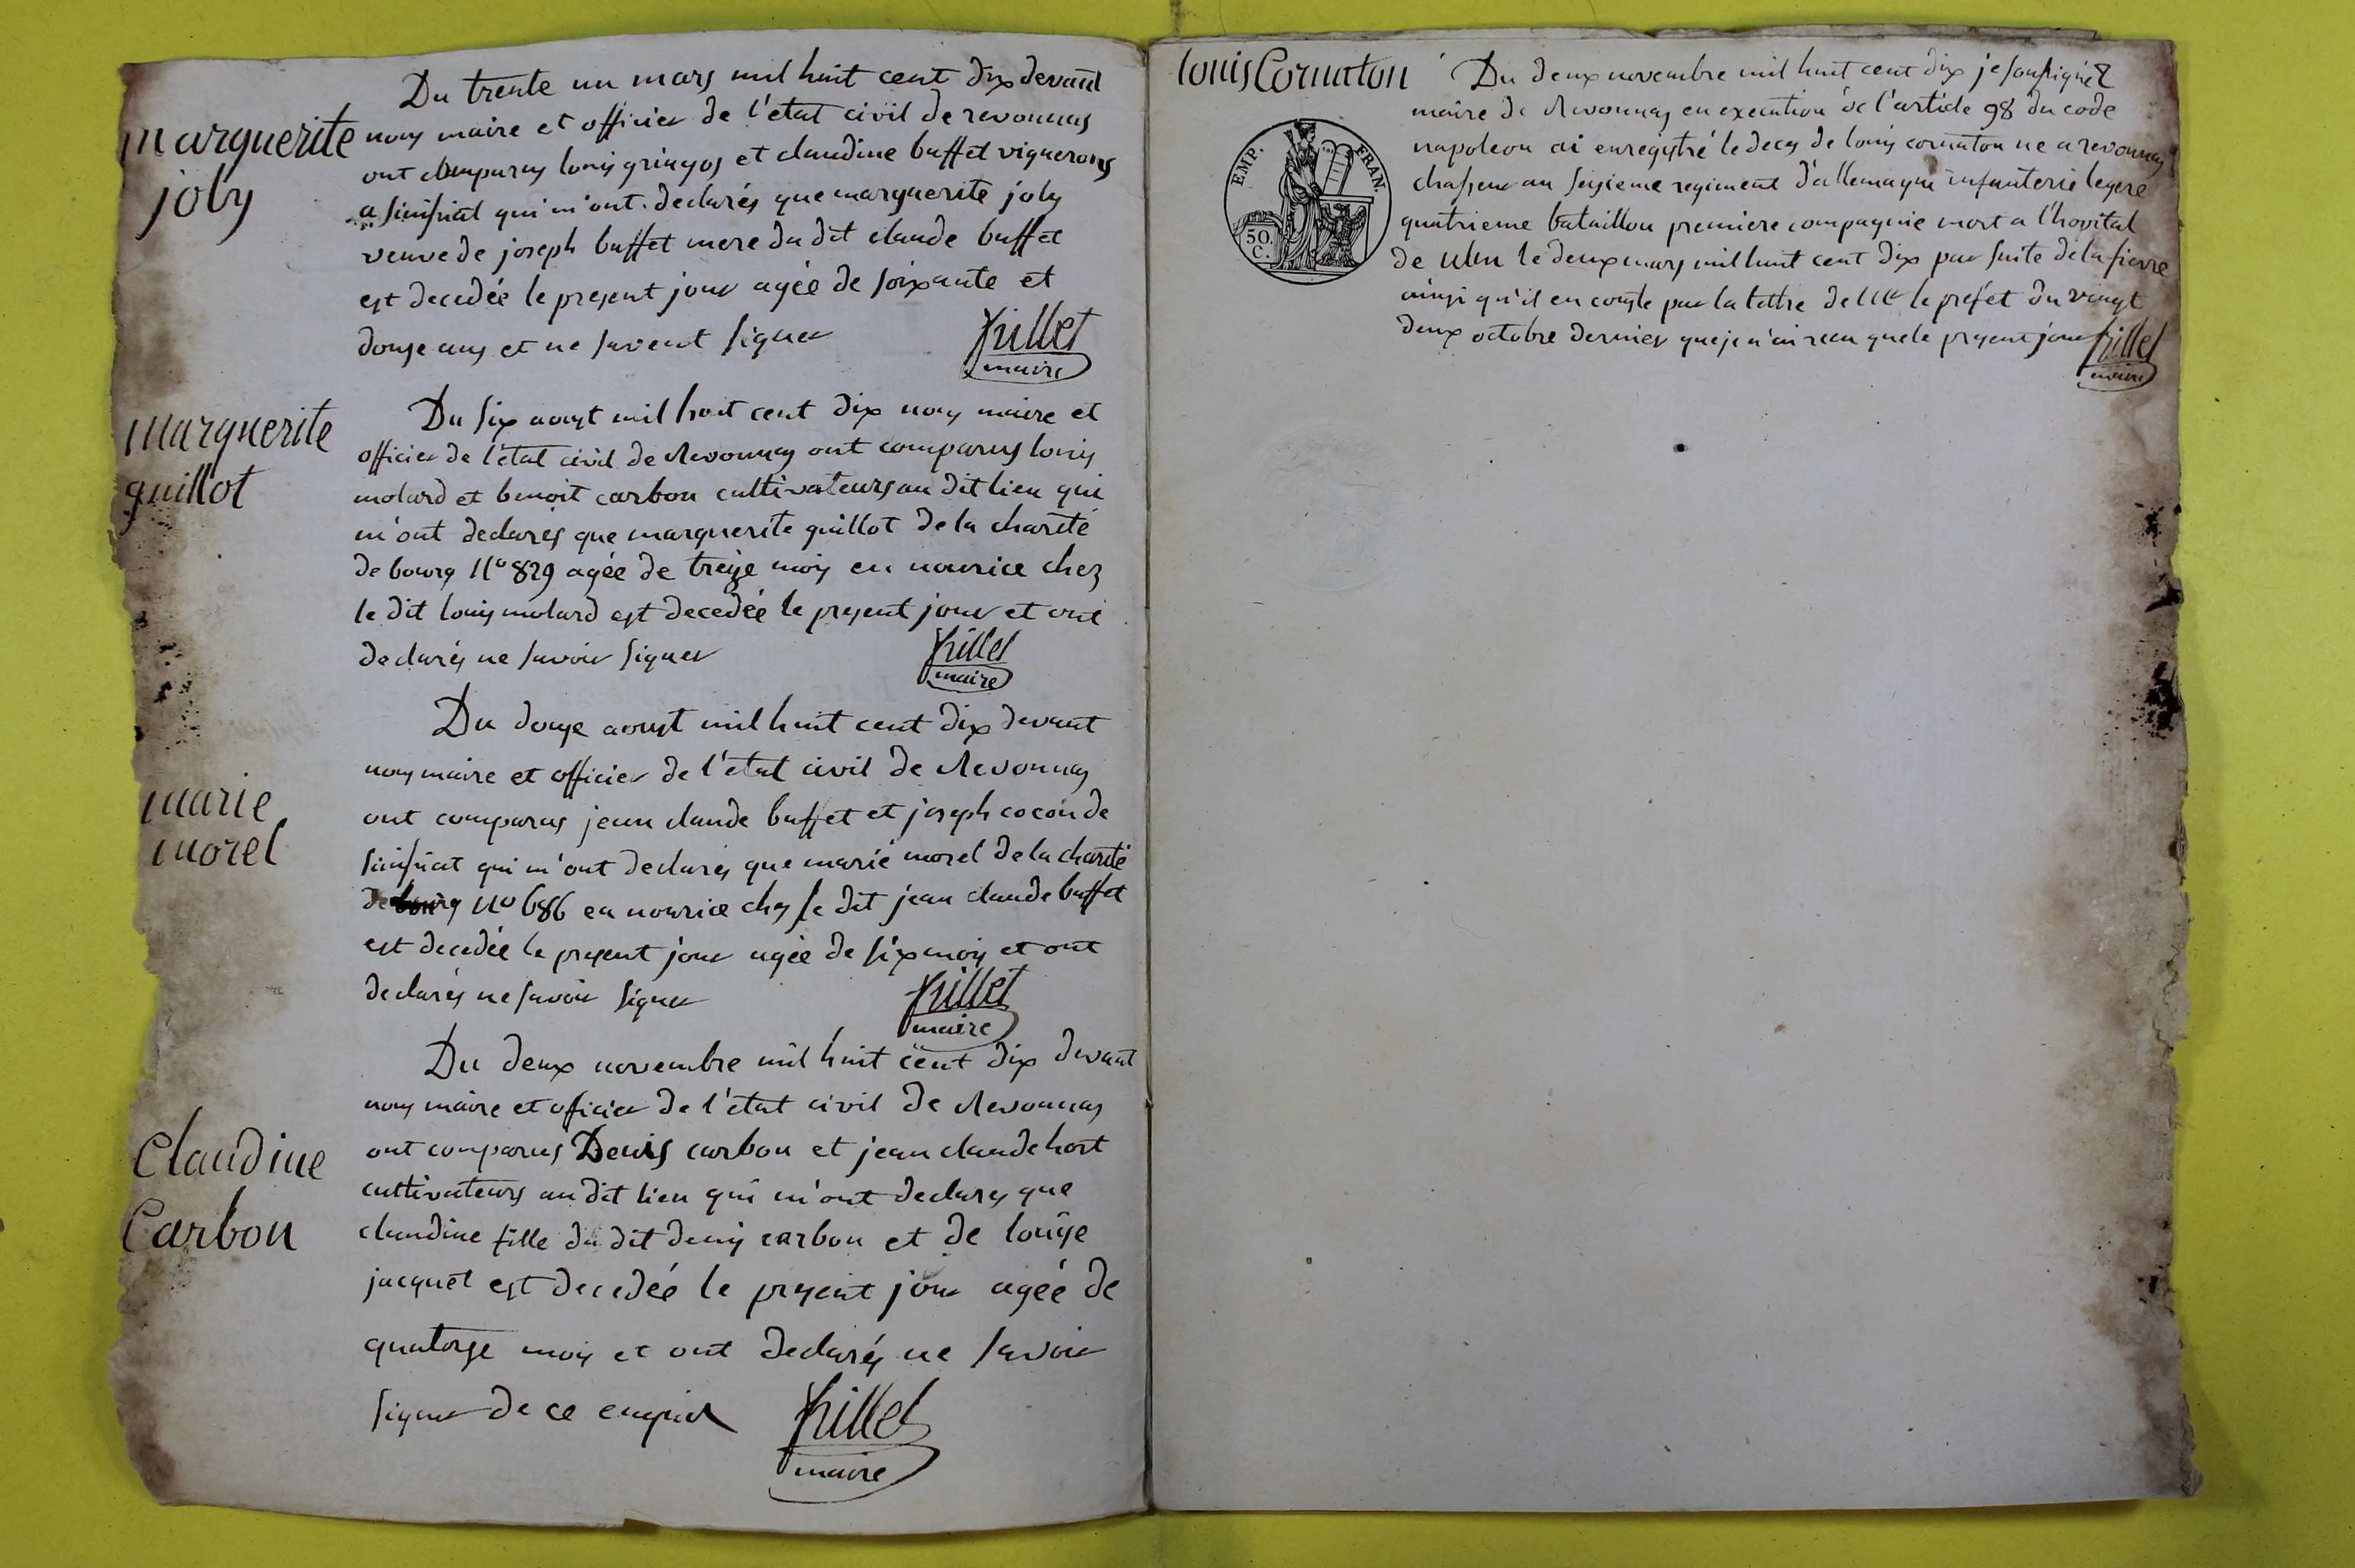 marguerite
joly
Du trente un mars mil huit cent dix devant
nous maire et officier de l'etat civil de revonnas
ont comparus louis gringos et claudine buffet vignerons
a simfriat qui m'ont declarés que marguerite joly
veuve de joseph buffet mere du dit claude buffet
est decedée le present jour agée de soixante et
douze ans et ne savent signer
maire
marguerite
guillot
Du six aoust mil huit cent dix nous maire et
officier de l'etat civil de Revonnas ont comparus louis
molard et benoit carbon cultivateurs au dit lieu qui
m'ont declarés que marguerite guillot de la charité
de bourg No 829 agée de treize mois en nourice chez
le dit louis molard est decedée le present jour et ont
declarés ne savoir signer
maire
marie
morel
Du douze aoust mil huit cent dix devant
nous maire et officier de l'etat civil de Revonnas
ont comparus jean claude buffet et joseph cocon de
simfriat qui m'ont declarés que marie morel de la charité
de bourg No 686 en nourice chez le dit jean claude buffet
est decedée le present jour agée de six mois et ont
declarés ne savoir signer
maire
Claudine
Carbon
Du deux novembre mil huit cent dix devant
nous maire et oficier de l'etat civil de Revonnas
ont comparus Denis carbon et jean claude hort
cultivateurs au dit lieu qui m'ont declarés que
claudine fille du dit denis carbon et de louise
jacquet est decedée le present jour agée de
quatorze mois et ont declarés ne savoir
signer de ce enquis
maire
louis Cornaton
Du deux novembre mil huit cent dix je sousigné
maire de Revonnas en execution de l'article 98 du code
napoleon ai enregistré le deces de louis cornaton ne a revonnas
chasseur au seizieme regiment d'allemagne infanterie legere
quatrieme bataillon premiere compagnie mort a l'hopital
de ulm le deux mars mil huit cent dix par suite de la fievre
ainsi qu'il en conste par la lettre de Mr le préfet du vingt
deux octobre dernier que je n'ai recu que le present jour
maire
EMP. FRAN.
50.
C.